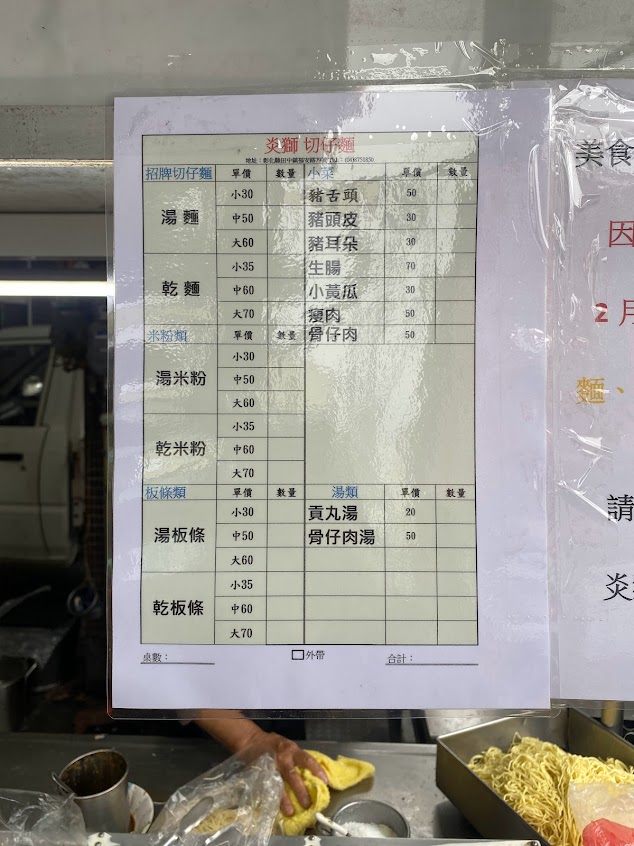 炎獅 切仔麵
招牌切仔麵 單價 數量 小菜 單價 數量
湯 麵 小30 豬舌頭 50
中50 豬頭皮 30
大60 豬耳朵 30
乾 麵 小35 生腸 70
中60 小黃瓜 30
大70 瘦肉 50
米粉類 單價 數量 骨仔肉 50
湯米粉 小30
中50
大60
乾米粉 小35
中60
大70
板條類 單價 數量 湯類 單價 數量
湯板條 小30 貢丸湯 20
中50 骨仔肉湯 50
大60
乾板條 小35
中60
大70
桌數： 外帶 合計：
美食
因
2 月
麵、
請
炎